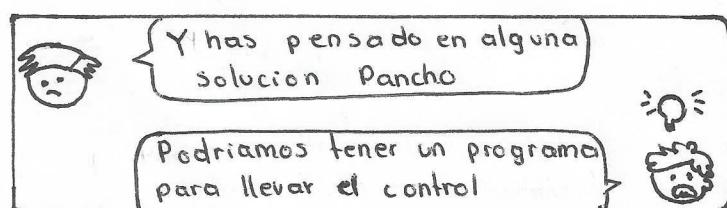 Y has pensado en alguna
solucion Pancho
Podriamos tener un programa
para llevar el control